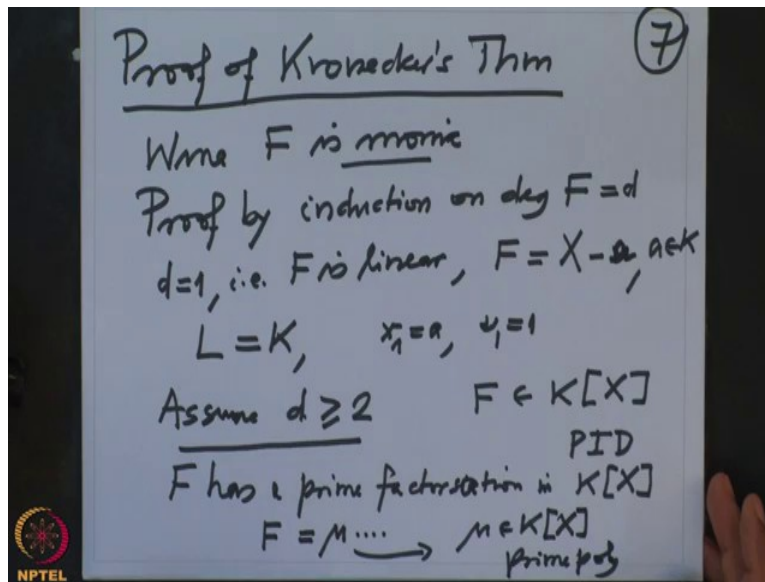 Proof of Kronecker's Thm
7
WMA F is monic
Proof by induction on deg F = d
d=1, i.e. F is linear, F = X - a, a ∈ K
L = K, x₁ = a, ν₁ = 1
Assume d ≥ 2 F ∈ K[X]
PID
F has a prime factorisation in K[X]
F = M .... → M ∈ K[X]
prime poly
NPTEL